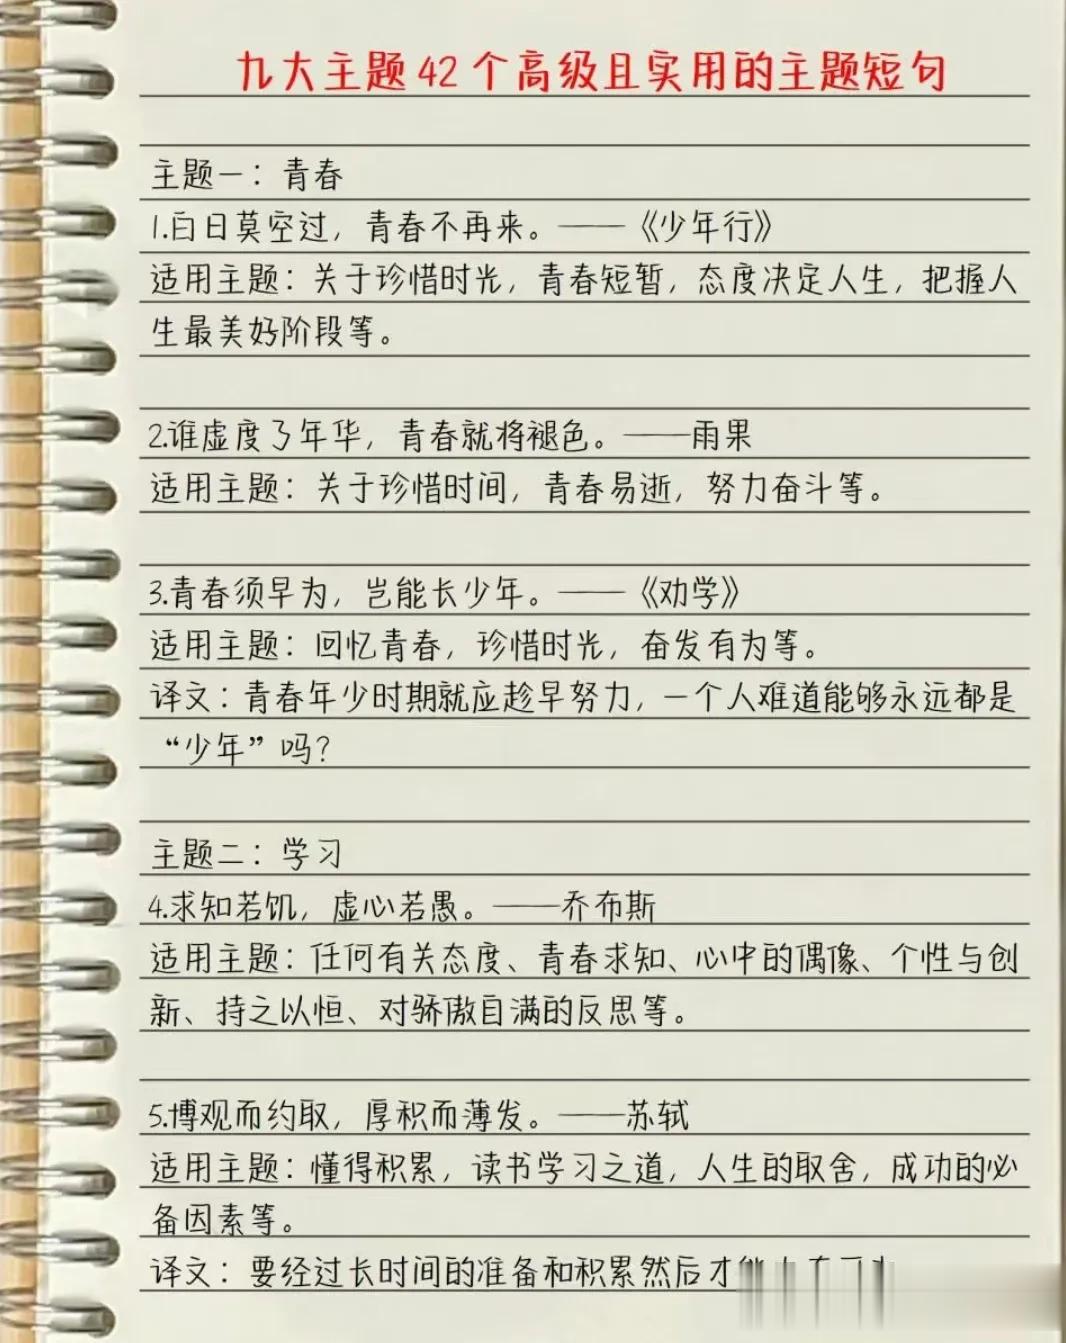 九大主题42个高级且实用的主题短句
主题一：青春
1.白日莫空过，青春不再来。——《少年行》
适用主题：关于珍惜时光，青春短暂，态度决定人生，把握人
生最美好阶段等。
2.谁虚度了年华，青春就将褪色。——雨果
适用主题：关于珍惜时间，青春易逝，努力奋斗等。
3.青春须早为，岂能长少年。——《劝学》
适用主题：回忆青春，珍惜时光，奋发有为等。
译文：青春年少时期就应趁早努力，一个人难道能够永远都是
“少年”吗？
主题二：学习
4.求知若饥，虚心若愚。——乔布斯
适用主题：任何有关态度、青春求知、心中的偶像、个性与创
新、持之以恒、对骄傲自满的反思等。
5.博观而约取，厚积而薄发。——苏轼
适用主题：懂得积累，读书学习之道，人生的取舍，成功的必
备因素等。
译文：要经过长时间的准备和积累然后才能